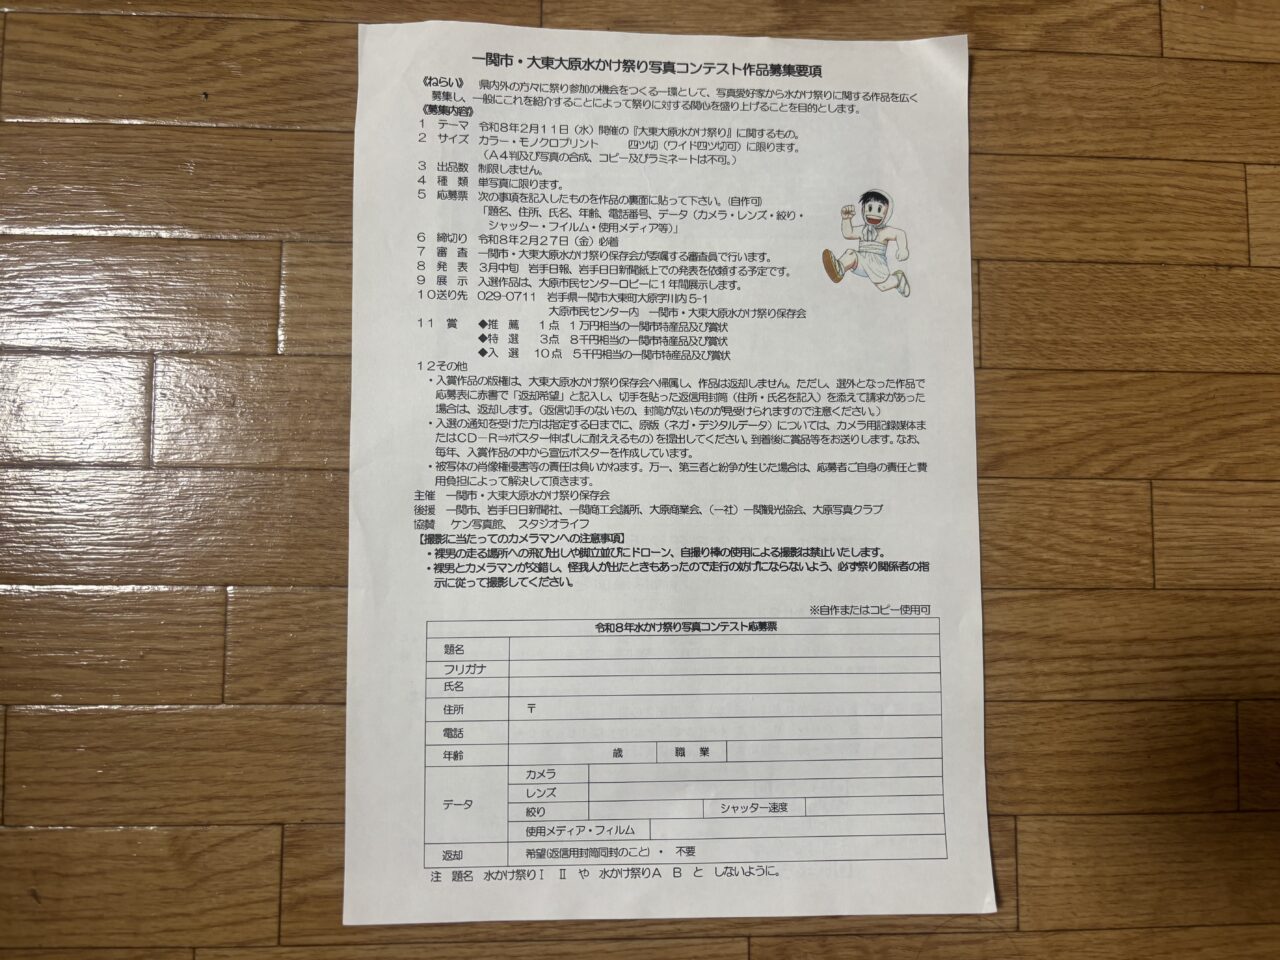 一関市・大東大原水かけ祭り写真コンテスト作品募集要項
《ねらい》 県内外の方々に祭り参加の機会をつくる一環として、写真愛好家から水かけ祭りに関する作品を広く
募集し、一般にこれを紹介することによって祭りに対する関心を盛り上げることを目的とします。
《募集内容》
1 テーマ 令和8年2月11日(水)開催の『大東大原水かけ祭り』に関するもの。
2 サイズ カラー・モノクロプリント 四ツ切(ワイド四ツ切可)に限ります。
(A4判及び写真の合成、コピー及びラミネートは不可。)
3 出品数 制限しません。
4 種類 単写真に限ります。
5 応募票 次の事項を記入したものを作品の裏面に貼って下さい。(自作可)
「題名、住所、氏名、年齢、電話番号、データ(カメラ・レンズ・絞り・
シャッター・フイルム・使用メディア等)」
6 締切り 令和8年2月27日(金)必着
7 審査 一関市・大東大原水かけ祭り保存会が委嘱する審査員で行います。
8 発表 3月中旬 岩手日報、岩手日日新聞紙上での発表を依頼する予定です。
9 展示 入選作品は、大原市民センターロビーに1年間展示します。
10送り先 029-0711 岩手県一関市大東町大原字川内5-1
大原市民センター内 一関市・大東大原水かけ祭り保存会
11 賞 ◆推薦 1点 1万円相当の一関市特産品及び賞状
◆特選 3点 8千円相当の一関市特産品及び賞状
◆入選 10点 5千円相当の一関市特産品及び賞状
12その他
・入賞作品の版権は、大東大原水かけ祭り保存会へ帰属し、作品は返却しません。ただし、選外となった作品で
応募表に赤書で「返却希望」と記入し、切手を貼った返信用封筒(住所・氏名を記入)を添えて請求があった
場合は、返却します。(返信切手のないもの、封筒がないものが見受けられますので注意ください。)
・入選の通知を受けた方は指定する日までに、原版(ネガ・デジタルデータ)については、カメラ用記録媒体ま
たはCD－R⇒ポスター伸ばしに耐ええるもの)を提出してください。到着後に賞品等をお送りします。なお、
毎年、入賞作品の中から宣伝ポスターを作成しています。
・被写体の肖像権侵害等の責任は負いかねます。万一、第三者と紛争が生じた場合は、応募者ご自身の責任と費
用負担によって解決して頂きます。
主催 一関市・大東大原水かけ祭り保存会
後援 一関市、岩手日日新聞社、一関商工会議所、大原商業会、(一社)一関観光協会、大原写真クラブ
協賛 ケン写真館、 スタジオライフ
【撮影に当たってのカメラマンへの注意事項】
・裸男の走る場所への飛び出しや脚立並びにドローン、自撮り棒の使用による撮影は禁止いたします。
・裸男とカメラマンが交錯し、怪我人が出たときもあったので走行の妨げにならないよう、必ず祭り関係者の指
示に従って撮影してください。
※自作またはコピー使用可
令和8年水かけ祭り写真コンテスト応募票
題名
フリガナ
氏名
住所 〒
電話
年齢 歳 職業
データ
カメラ
レンズ
絞り シャッター速度
使用メディア・フィルム
返却 希望(返信用封筒同封のこと) ・ 不要
注 題名 水かけ祭りⅠ Ⅱ や 水かけ祭りA B と しないように。